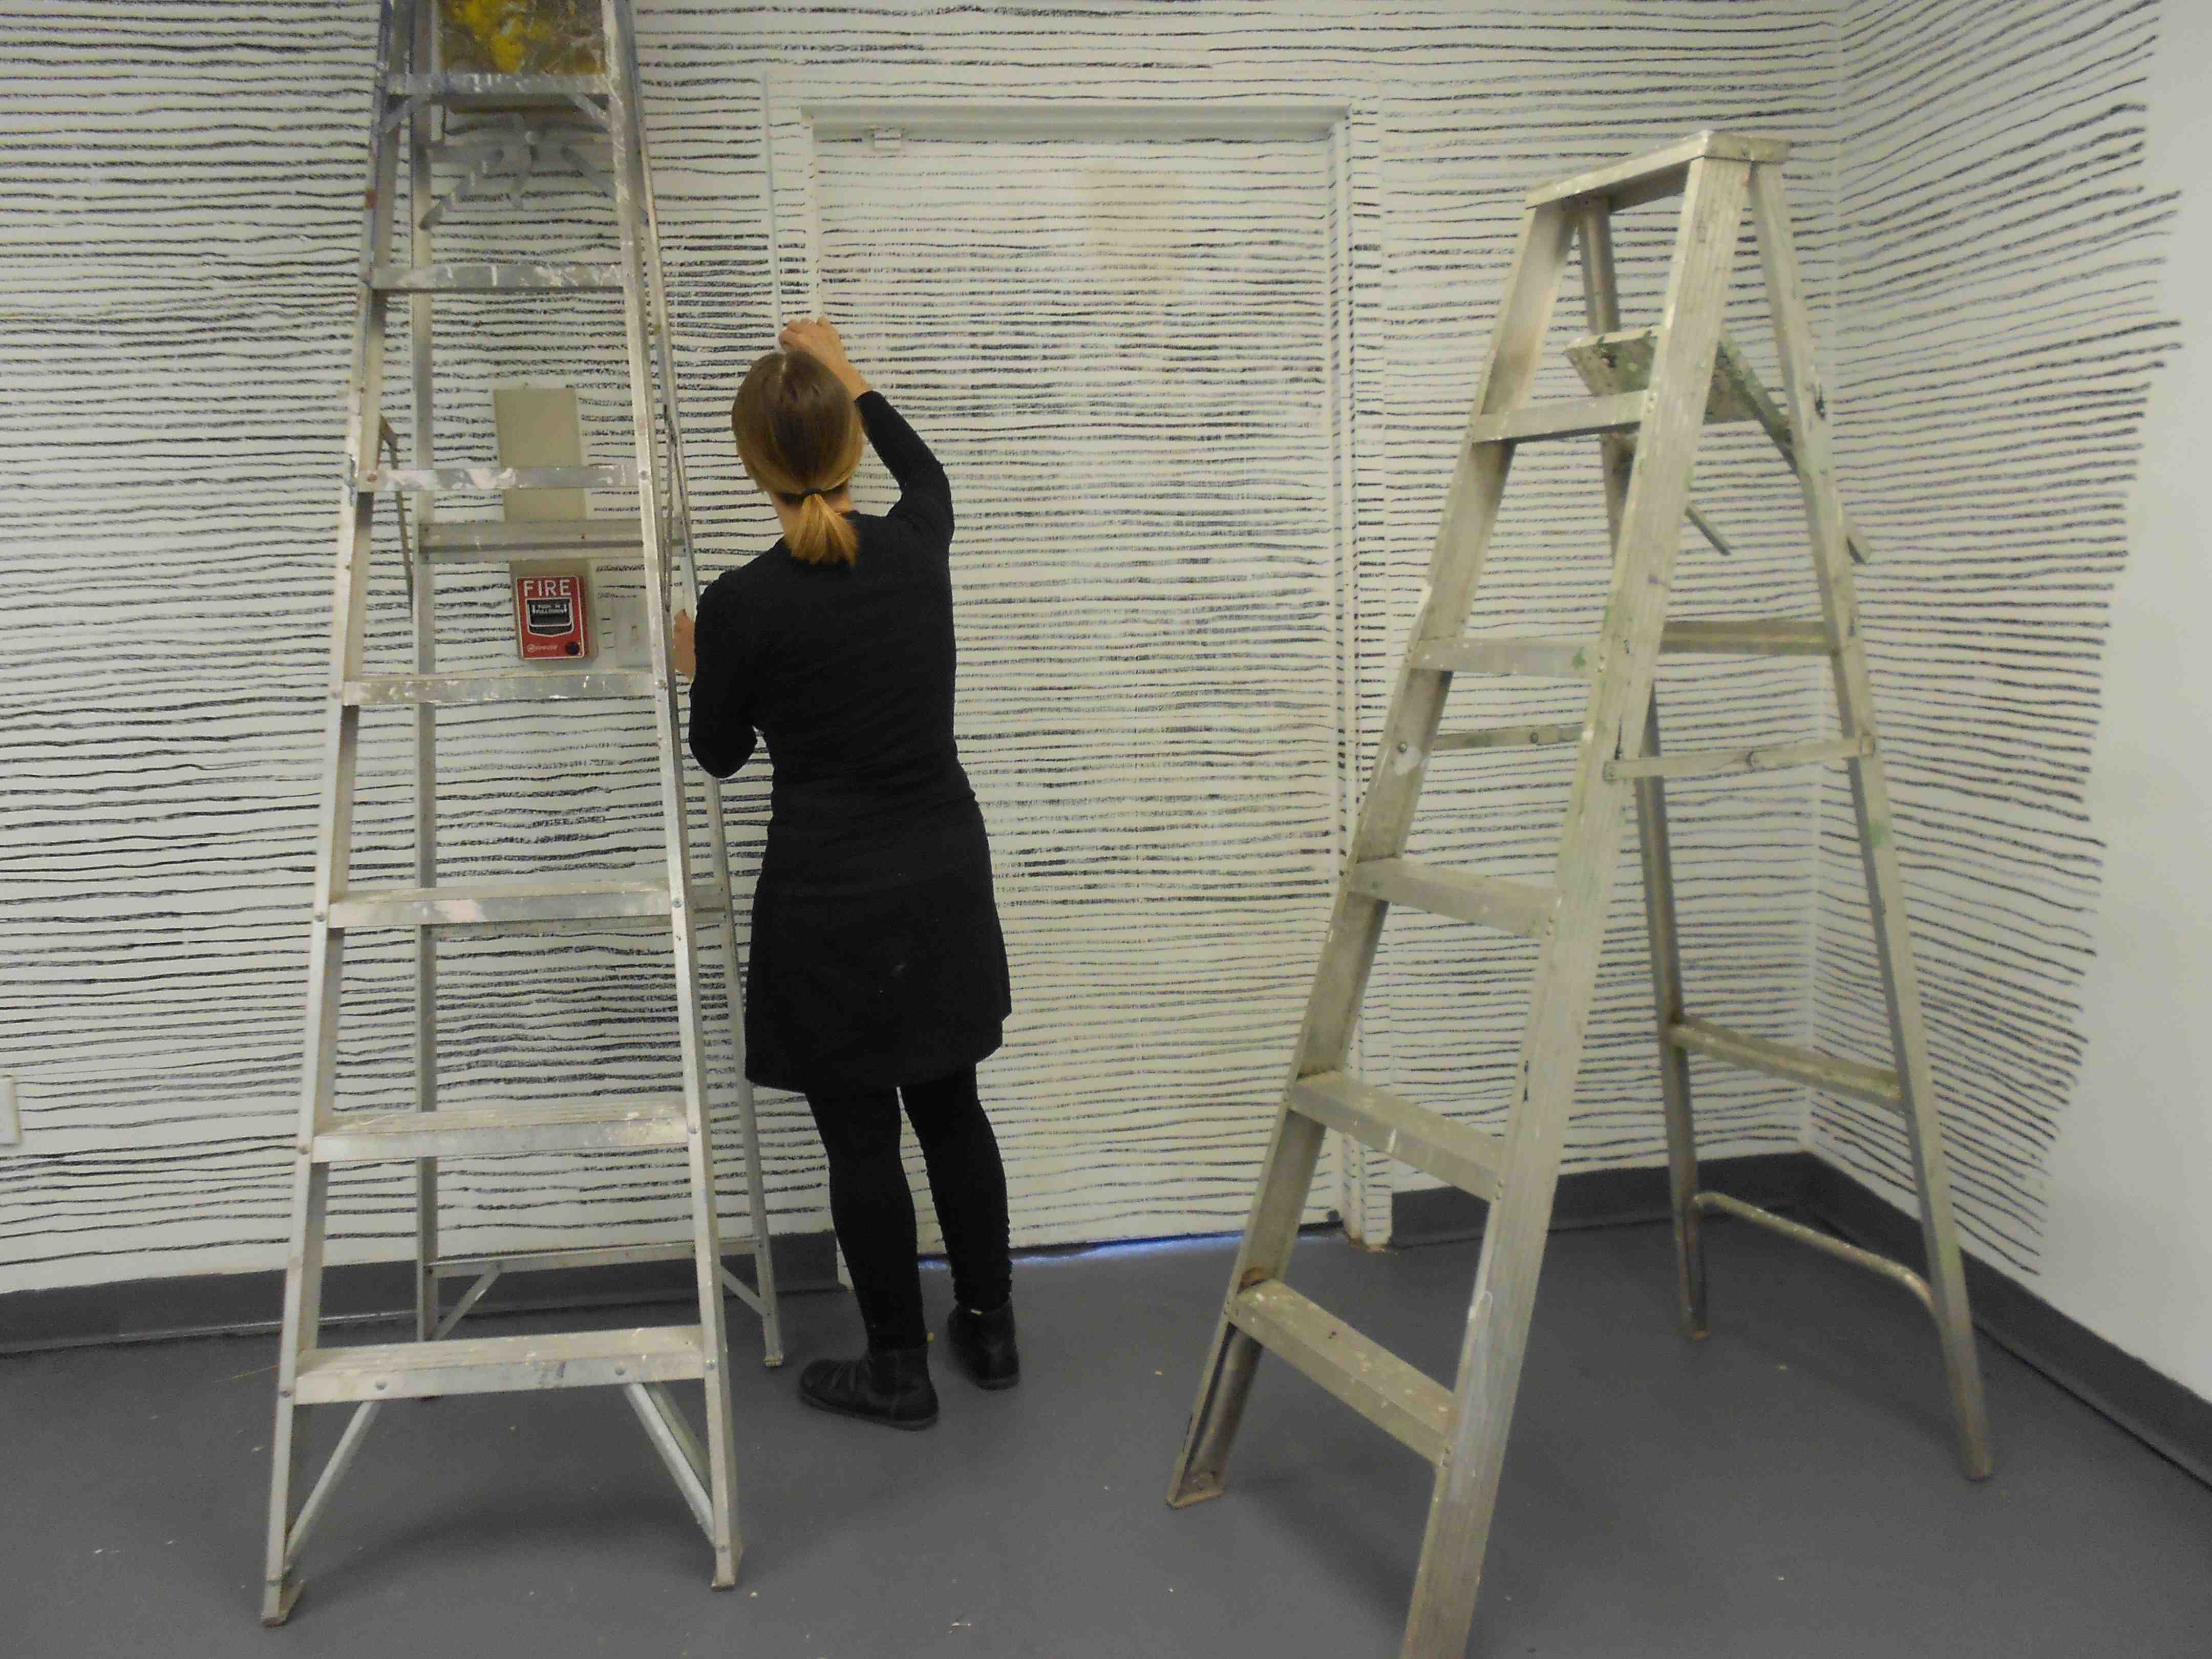 FIRE
PUSH IN
PULL DOWN